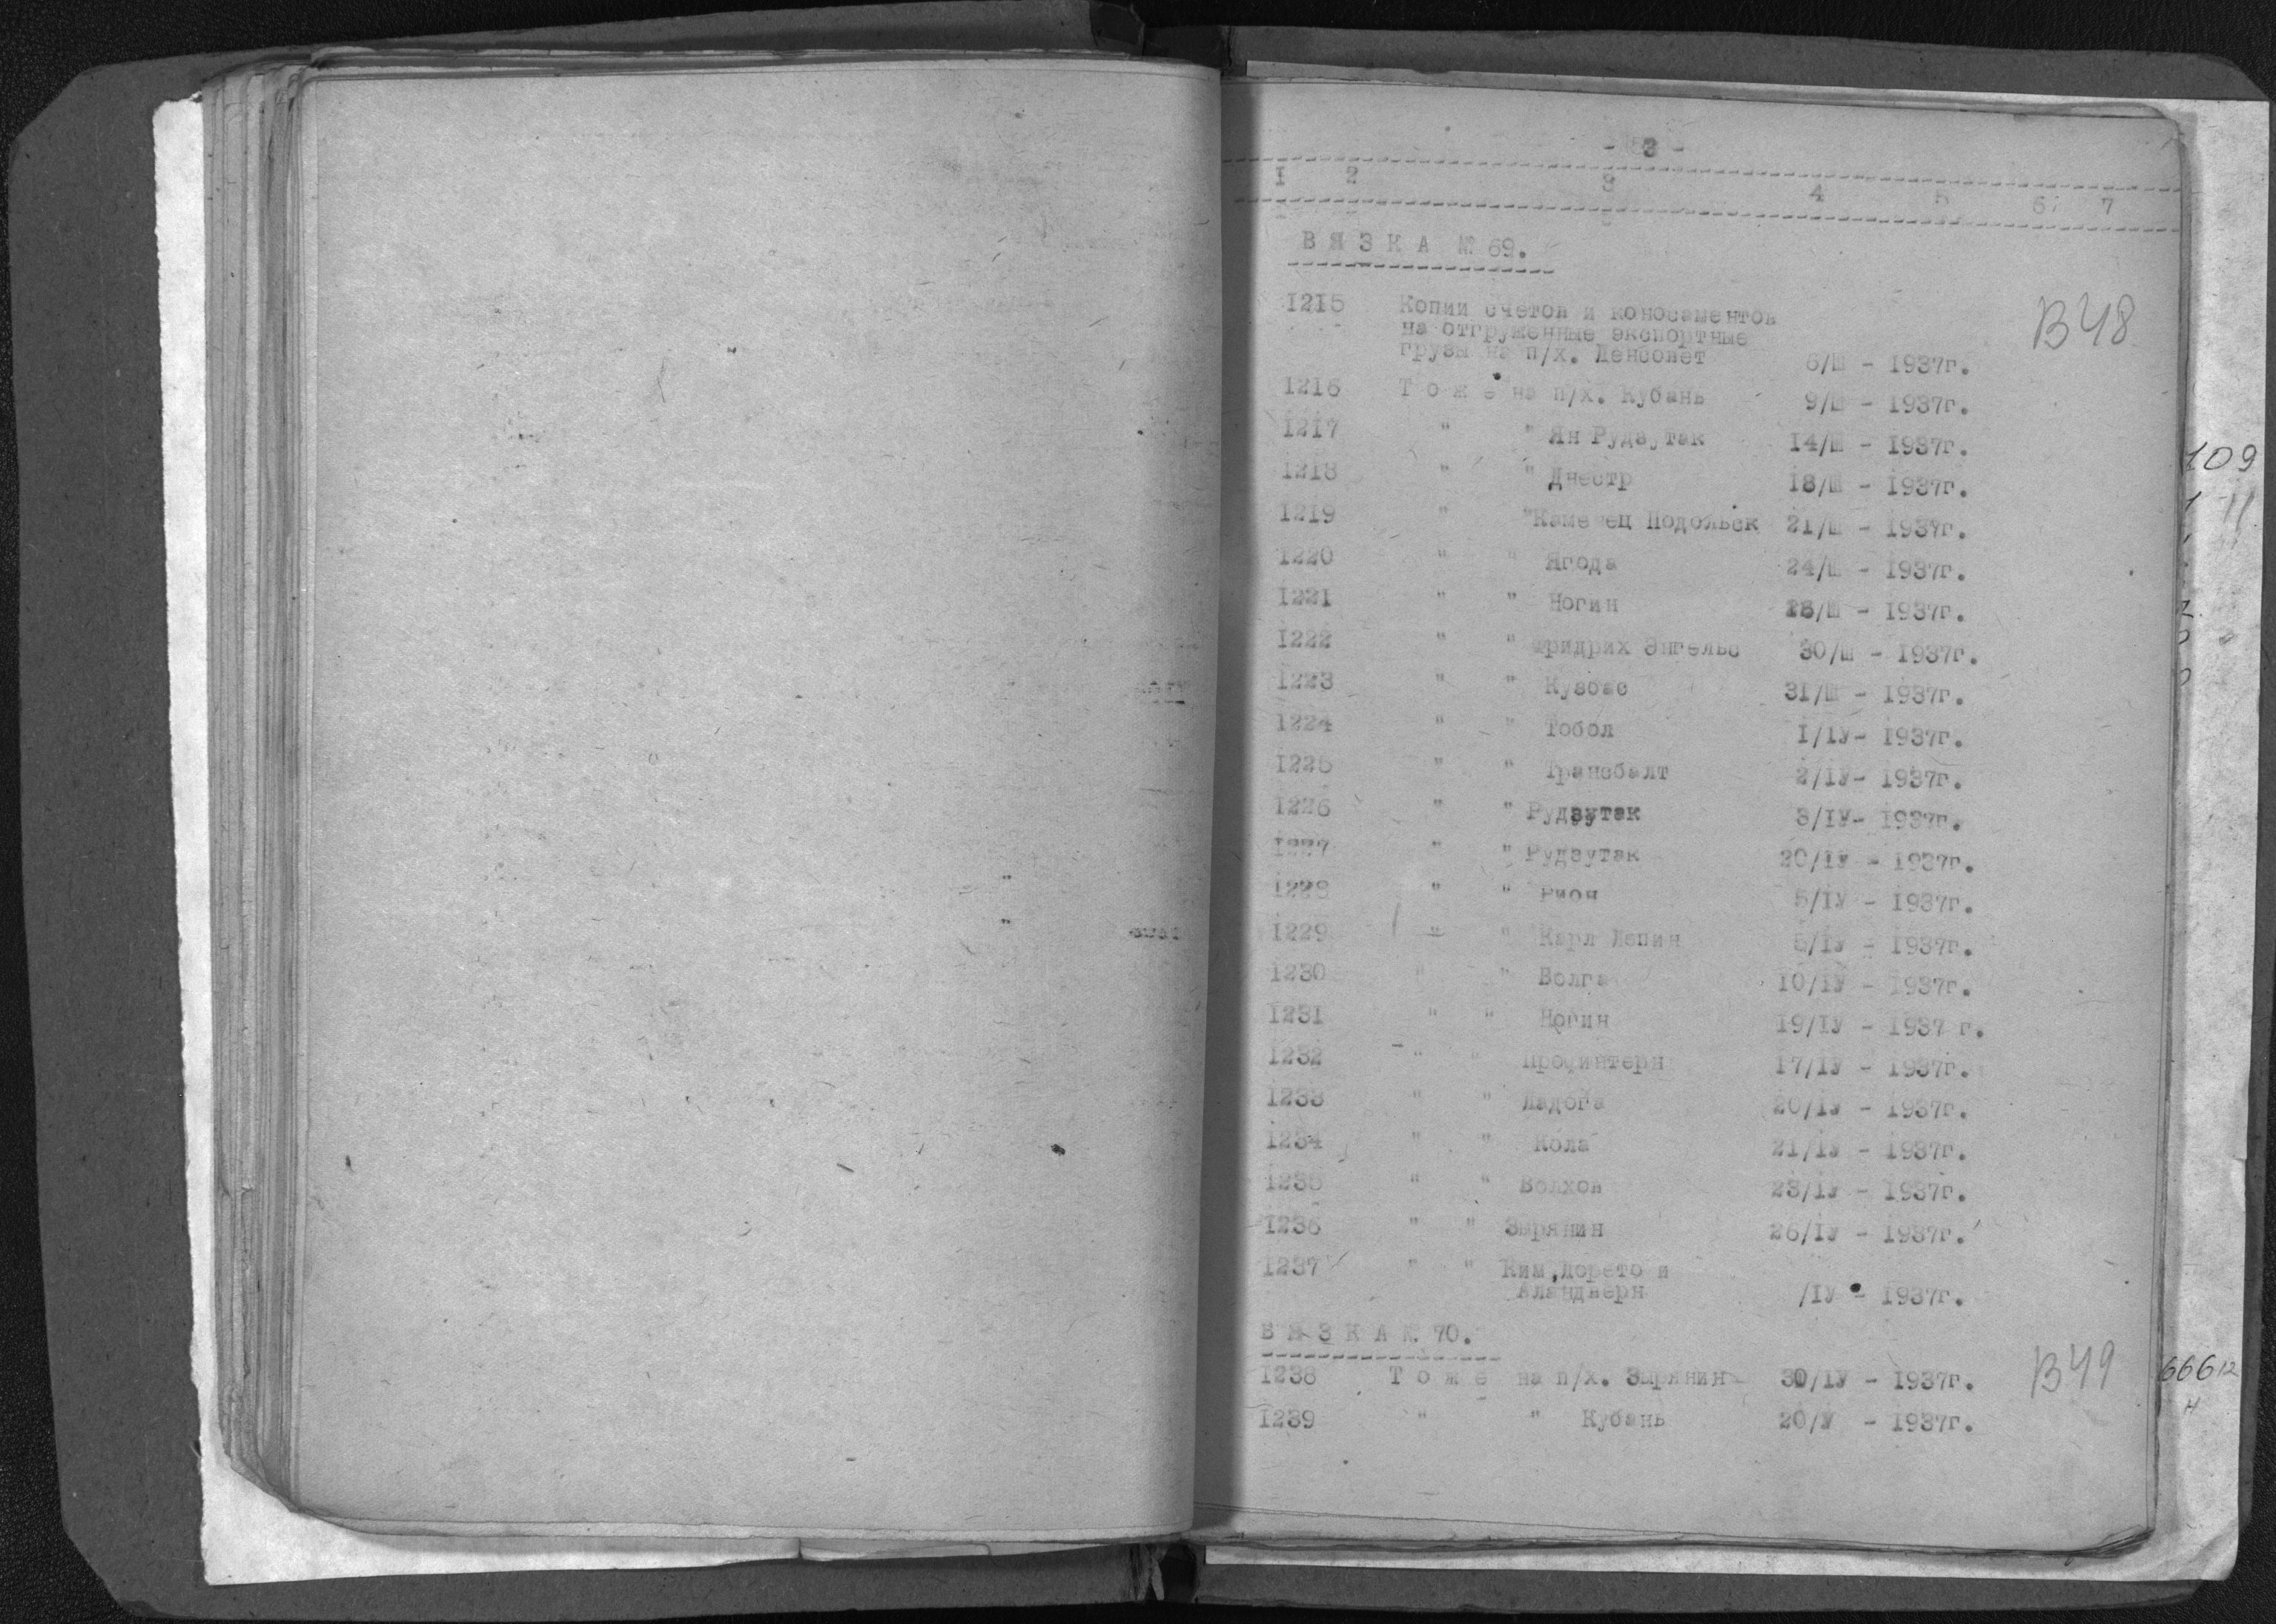 - 3 -
1 2 3 4 5 6 7
ВЯЗКА № 69.
1215 Копии счетов и коносаментов
на отгруженные экспортные
грузы на п/х. Ленсовет 6/Ш - 1937г.
В48
1216 Тоже на п/х. Кубань 9/Ш - 1937г.
1217 " " Ян Рудзутак 14/Ш - 1937г.
1218 " " Днестр 18/Ш - 1937г.
1219 " "Каменец Подольск 21/Ш - 1937г.
1220 " " Ягода 24/Ш - 1937г.
1221 " " Ногин 28/Ш - 1937г.
1222 " " Фридрих Энгельс 30/Ш - 1937г.
1223 " " Кузбас 31/Ш - 1937г.
1224 " " Тобол 1/1У- 1937г.
1225 " " Трансбалт 2/1У- 1937г.
1226 " " Рудзутак 3/1У- 1937г.
1227 " " Рудзутак 20/1У - 1937г.
1228 " " Рион 5/1У - 1937г.
1229 " " Карл Лепин 5/1У - 1937г.
1230 " " Волга 10/1У - 1937г.
1231 " " Ногин 19/1У - 1937 г.
1232 " " Профинтерн 17/1У - 1937г.
1233 " " Ладога 20/1У - 1937г.
1234 " " Кола 21/1У - 1937г.
1235 " " Волхов 23/1У - 1937г.
1236 " " Зырянин 26/1У - 1937г.
1237 " " Ким, Лорето и
Аландверн /1У - 1937г.
ВЯЗКА № 70.
1238 Тоже на п/х. Зырянин 30/1У - 1937г.
В49
1239 " " Кубань 20/У - 1937г.
109
11
666